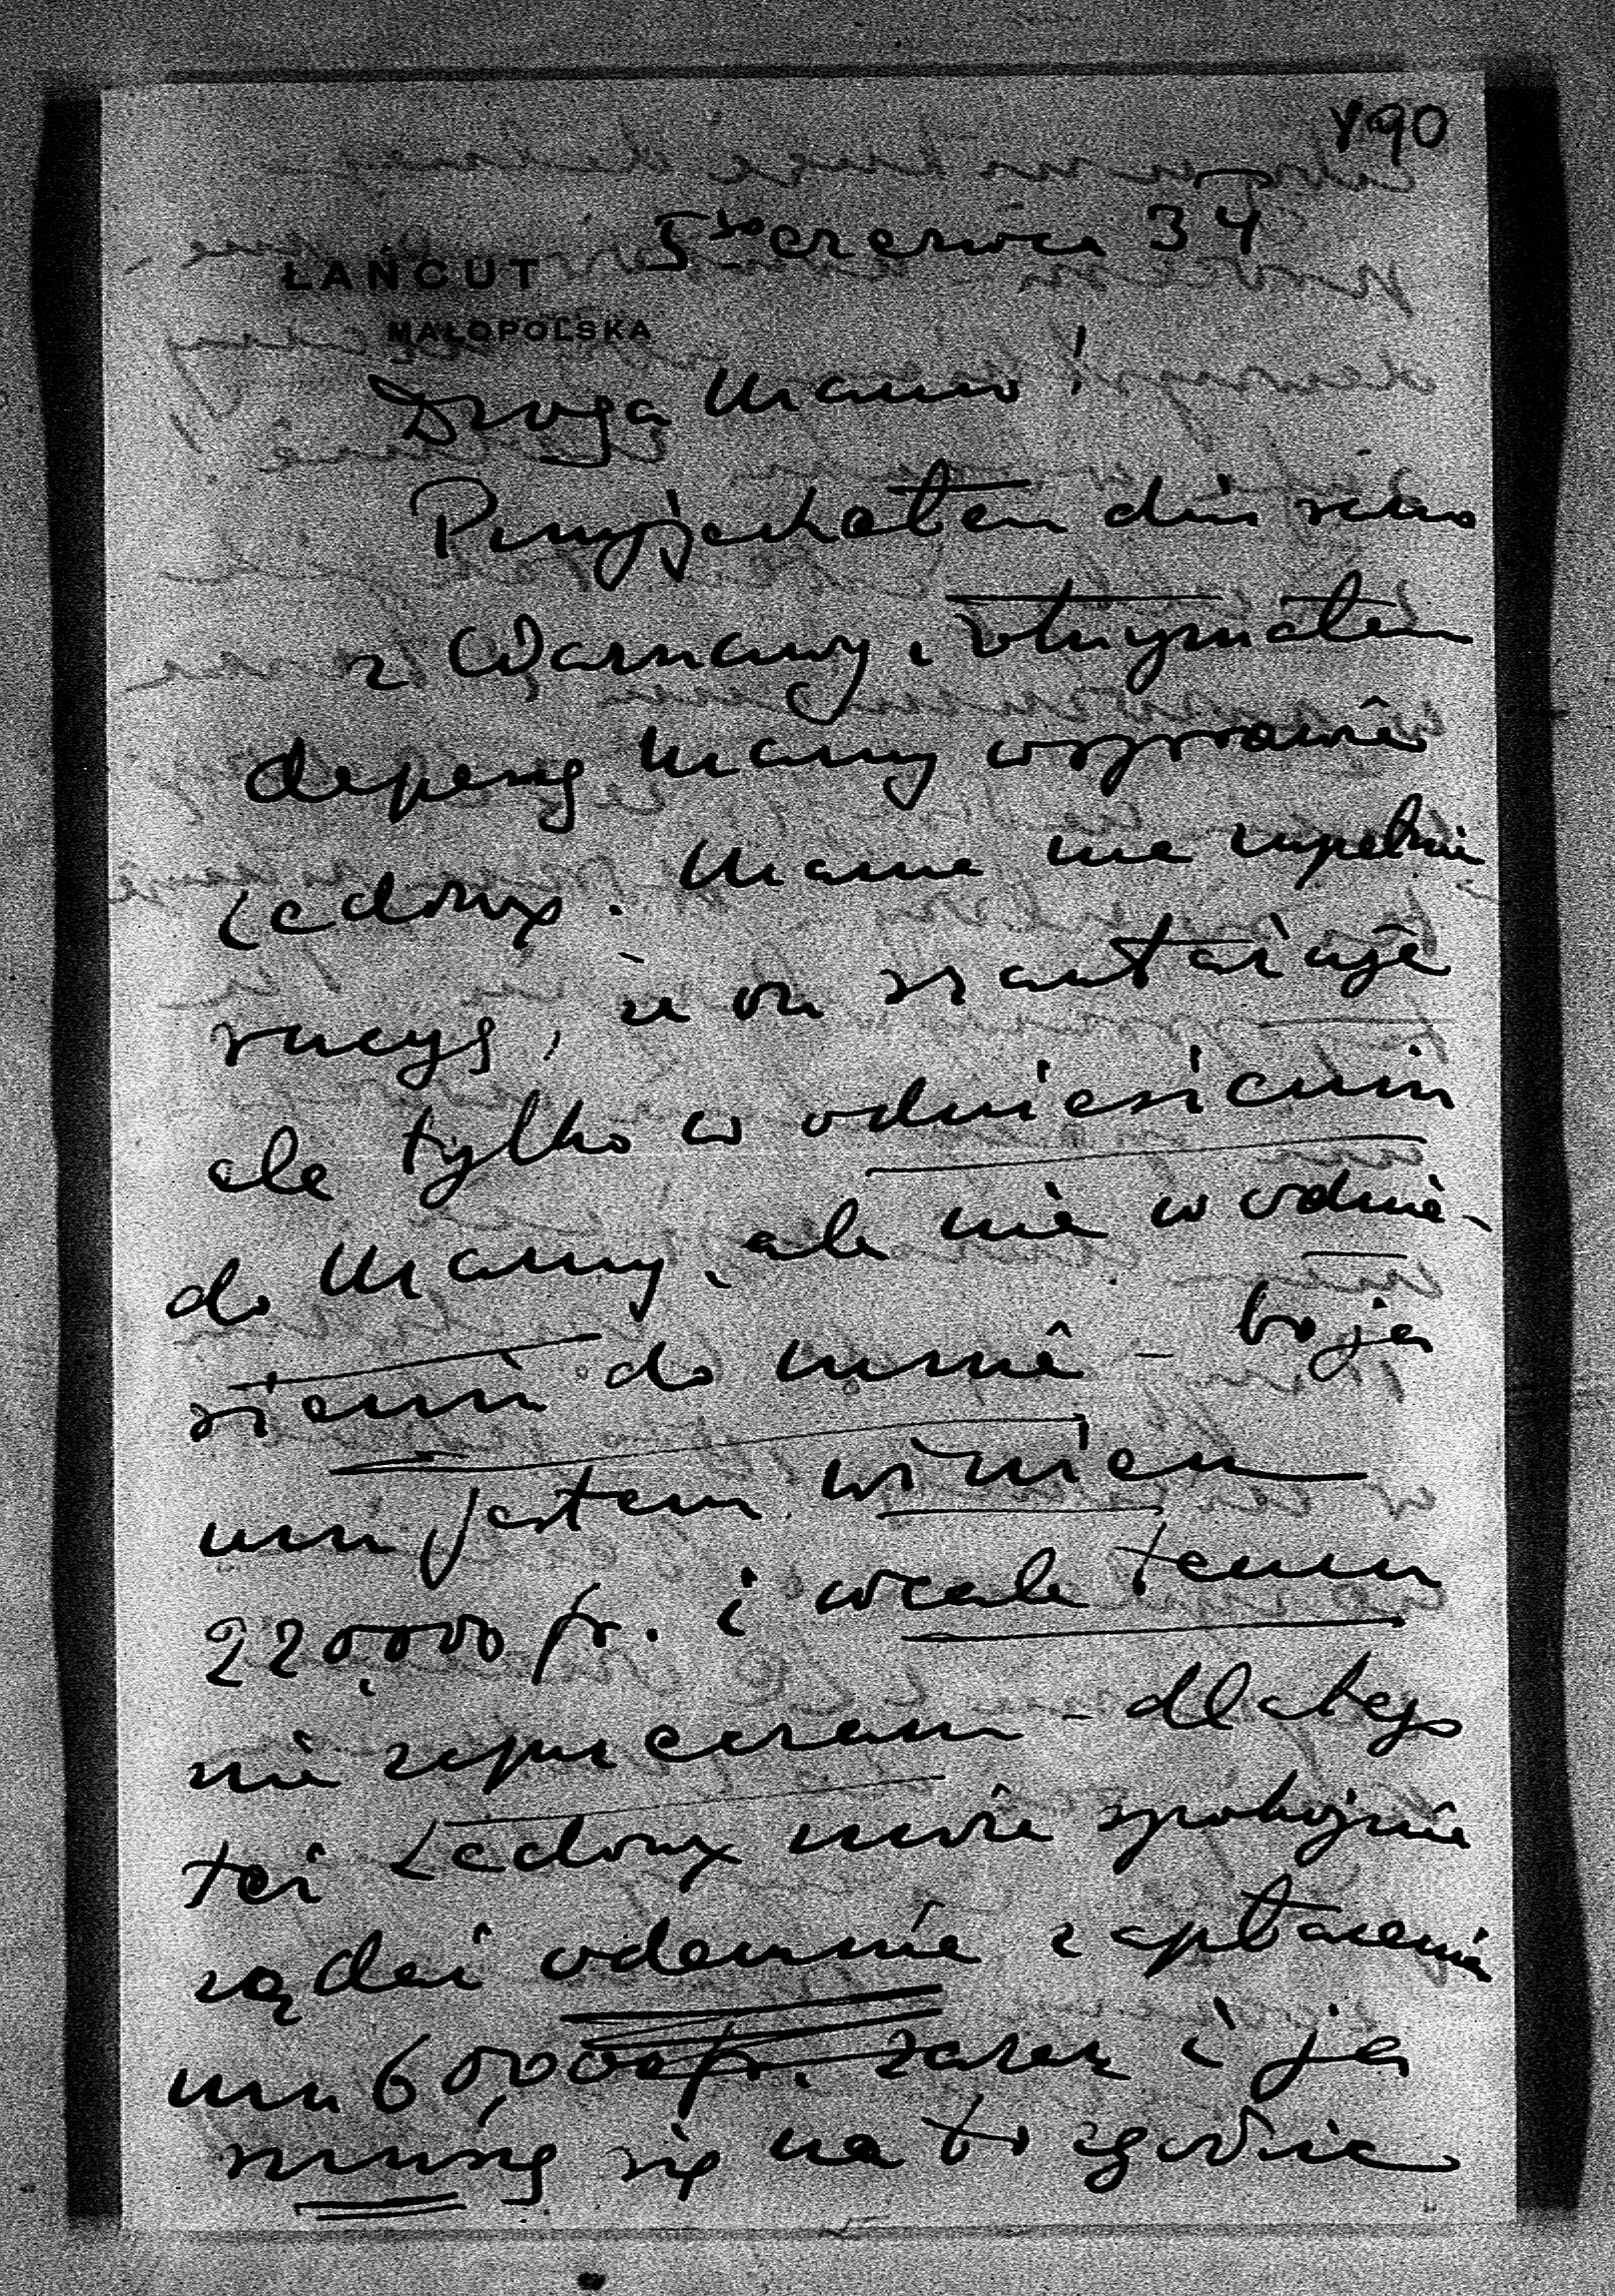 890
5go czerwca 34
ŁAŃCUT
MAŁOPOLSKA
Droga Mamo!
Przyjechałem dziś rano
z Warszawy i otrzymałem
depeszę Mamy w sprawie
Ledoux. Mama ma zupełnie
racyę, że on szantażuje
ale tylko w odniesieniu
do Mamy, ale nie w odnie-
sieniu do mnie – bo ja
mu jestem winien
220,000 fr. i wcale temu
nie zaprzeczam – dlatego
też Ledoux może spokojnie
żądać odemnie zapłacenia
mu 60,000 fr. zaraz i ja
muszę się na to zgodzić